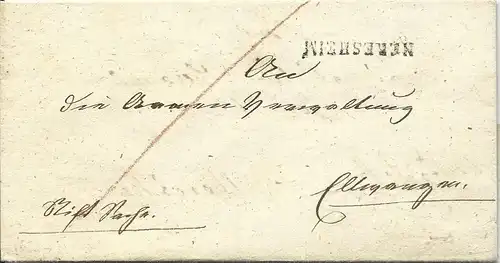 NERESHEIM
An
die Armen Verwaltung
Ellwangen.
Stift Sache.